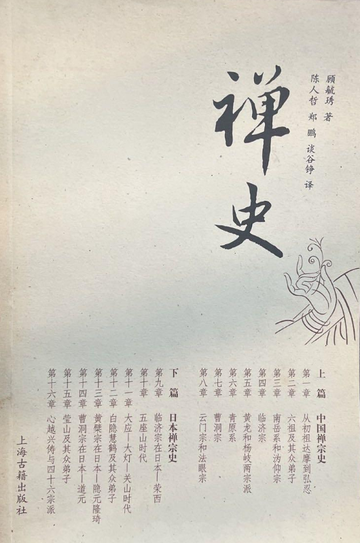 禅史
顾毓琇 著
陈人哲 郑鹏 谈谷铮 译
上 篇 中国禅宗史
第一章 从初祖达摩到弘忍
第二章 六祖及其众弟子
第三章 南岳系和沩仰宗
第四章 临济宗
第五章 黄龙和杨岐两宗派
第六章 青原系
第七章 曹洞宗
第八章 云门宗和法眼宗
下 篇 日本禅宗史
第九章 临济宗在日本—荣西
第十章 五座山时代
第十一章 大应—大灯—关山时代
第十二章 白隐慧鹤及其众弟子
第十三章 黄檗宗在日本—隐元隆琦
第十四章 曹洞宗在日本—道元
第十五章 莹山及其众弟子
第十六章 心越兴俦与四十六宗派
上海古籍出版社